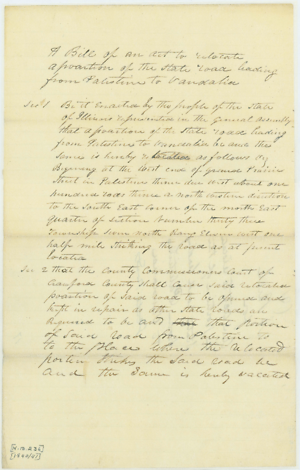 A Bill of an act to relocate
a poartion of the State road leading
from Palestine to Vandalia
Sec 1 Be it Enacted by the people of the State
of Illinois represented in the general assembly
that a poartion of the State road leading
from Palestine to Vandalia be and the
Same is hereby as follows
Begining at the West end of grand Prairie
Street in Palestine thence due West about one
hundred rods thence a north western direction
to the South East corner of the North East
quarter of Section Number thirty three
Township Seven north Rang Eleven west one
half mile Striking the road as at present
located
Sec 2 that the County Commissioners Court of
Crawford County Shall cause Said relocated
poartion of Said road to be opened and
kept in repair as other State roads are
required to be and that portion
of Said Road from Palestine to
to the place where the relocated
portion Strikes the Said road be
and the Same is hereby vacated